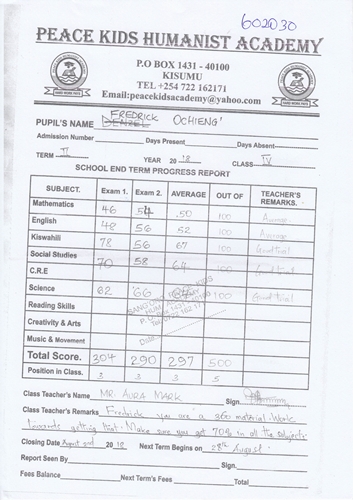 602030
PEACE KIDS HUMANIST ACADEMY
P.O BOX 1431 - 40100
KISUMU
TEL +254 722 162171
Email:peacekidsacademy@yahoo.com
FREDRICK
PUPIL'S NAME DENZEL OCHIENG'
Admission Number Days Present Days Absent
TERM II YEAR 2018 CLASS IV
SCHOOL END TERM PROGRESS REPORT
SUBJECT. Exam 1. Exam 2. AVERAGE OUT OF TEACHER'S REMARKS.
Mathematics 46 54 50 100 Average
English 48 56 52 100 Average
Kiswahili 78 56 67 100 Good trial
Social Studies 70 58 64 100 Good trial
C.R.E
Science 62 66 100 Good trial
Reading Skills
Creativity & Arts
Music & Movement
Total Score. 304 290 297 500
Position in Class. 3 3 3 5
Class Teacher's Name MR. AURA MARK Sign
Class Teacher's Remarks Fredrick you are a 360 material. Work
towards getting that. Make sure you get 70% in all the subjects.
Closing Date August 2nd 2018 Next Term Begins on 28th August
Report Seen By Sign
Fees Balance Next Term's Fees Total